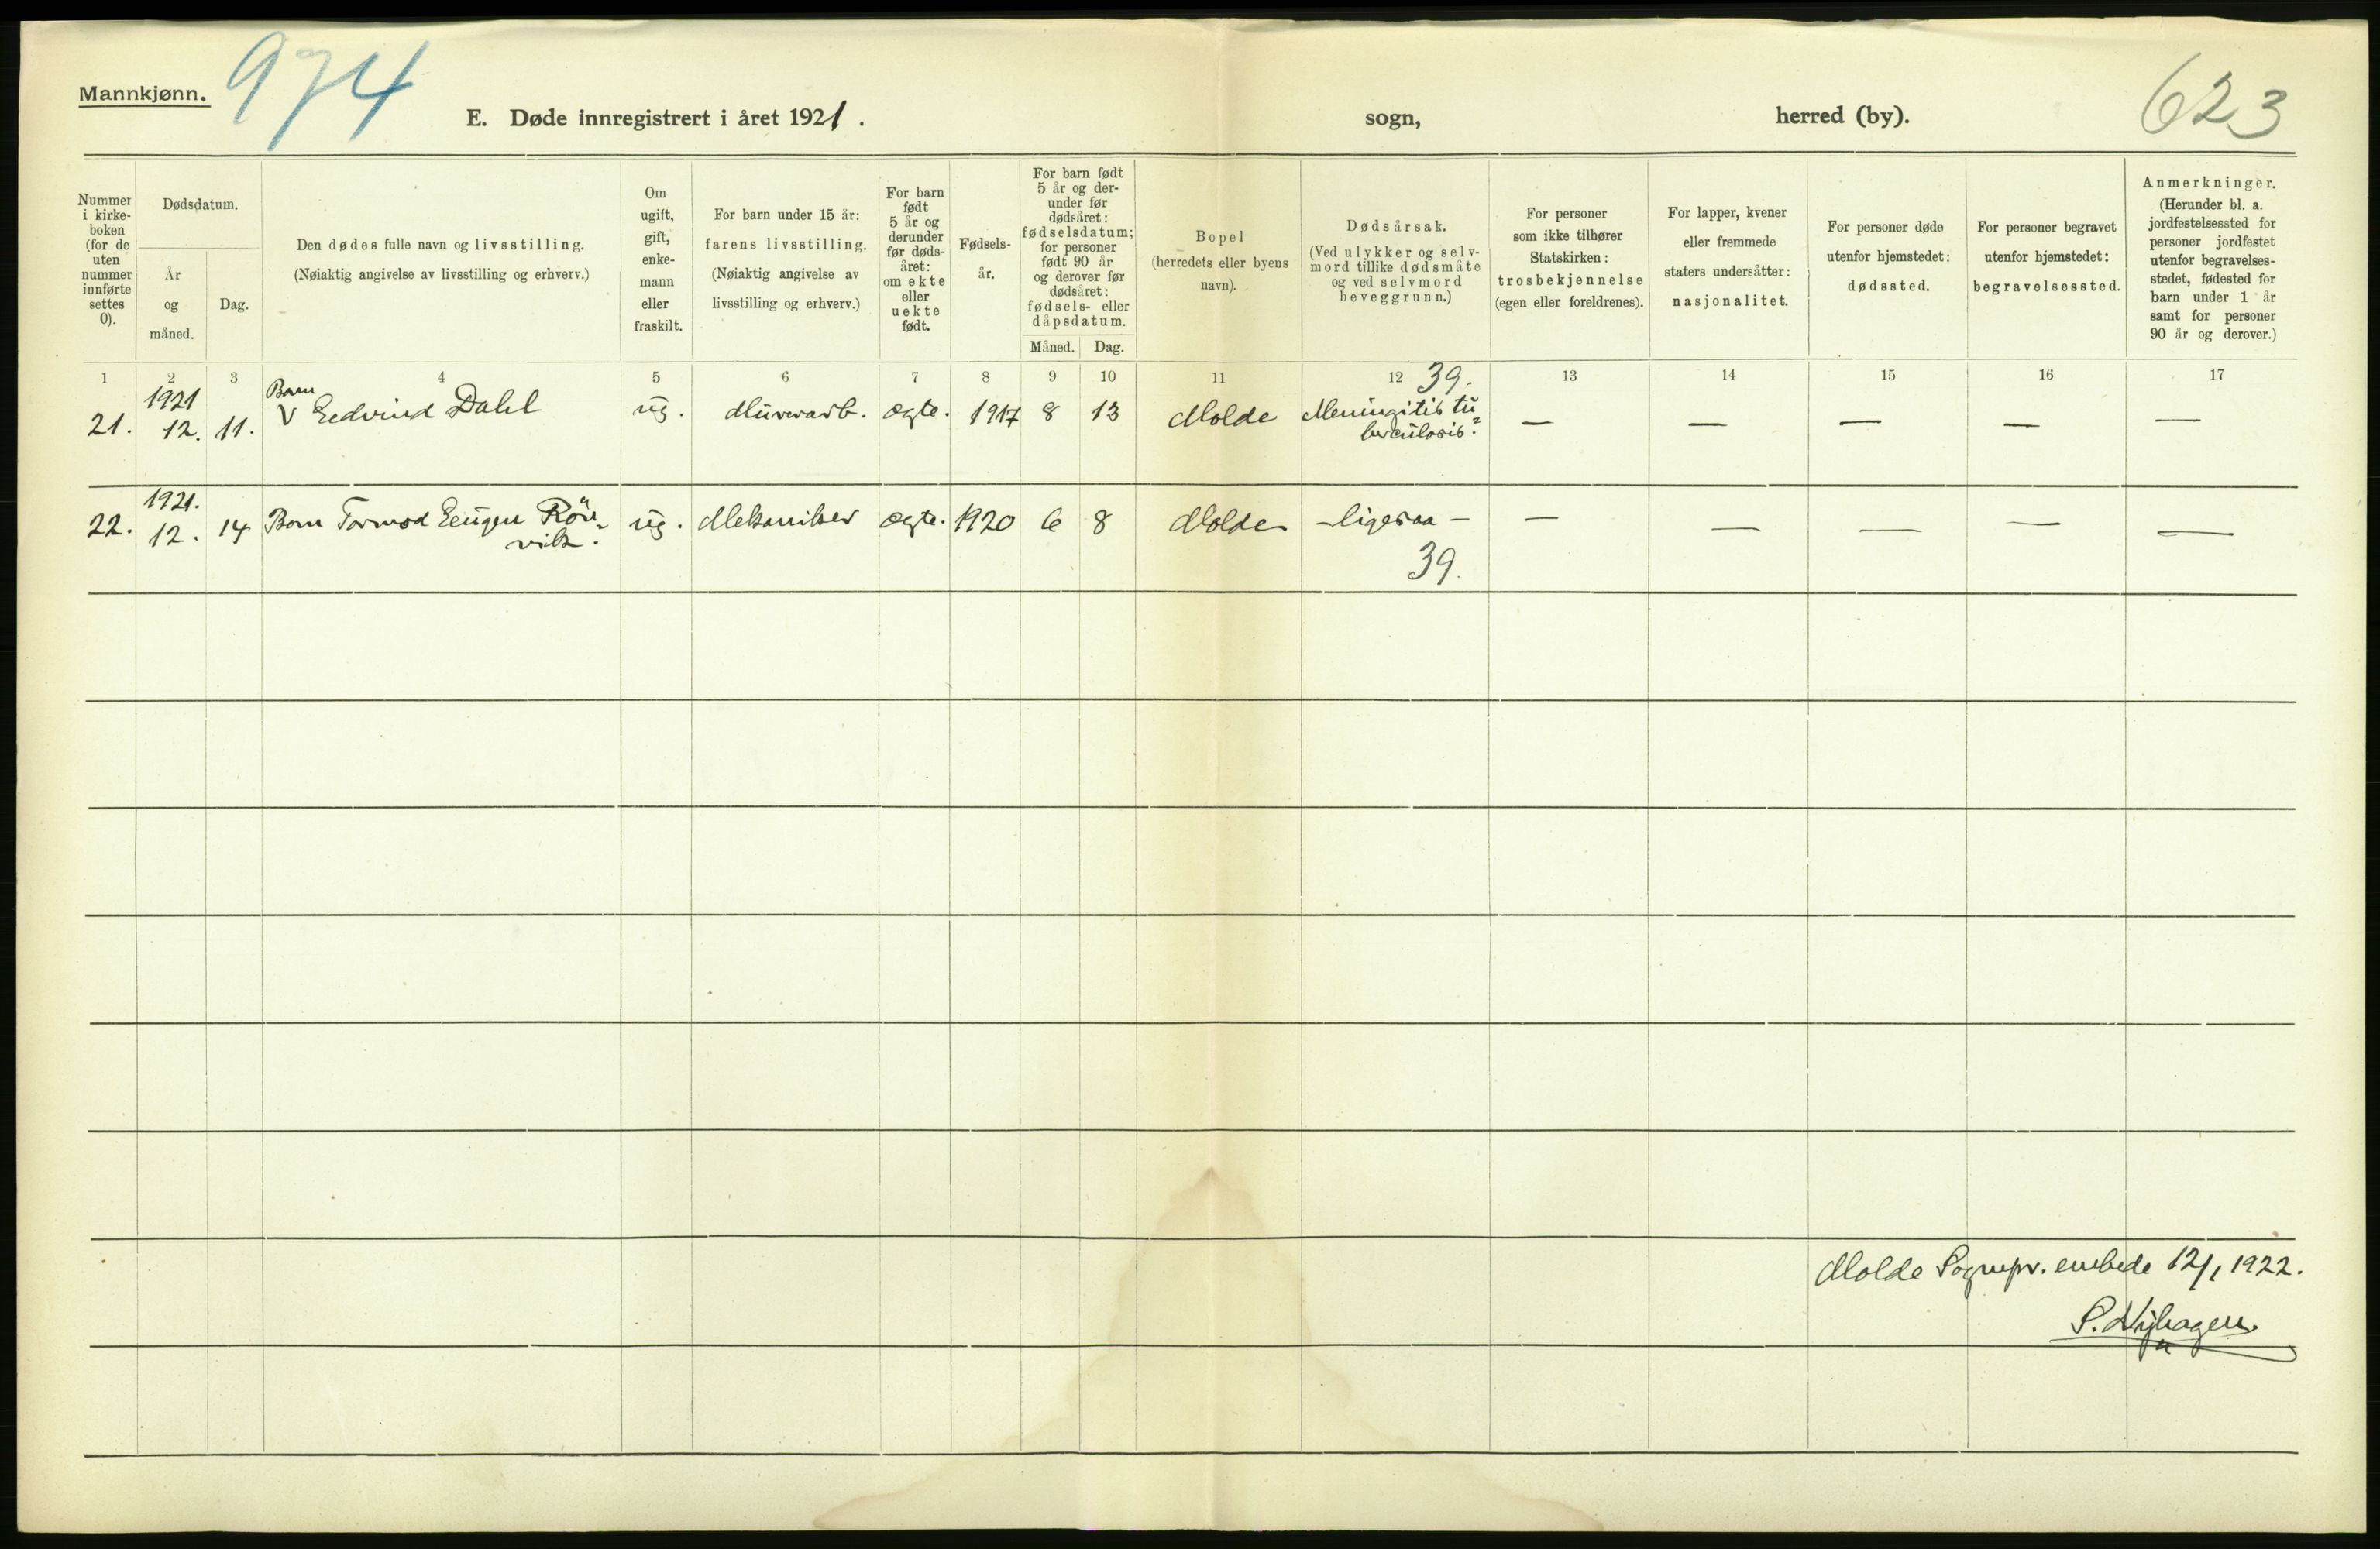 Mannkjønn.
974
E. Døde innregistrert i året 1921.
sogn,
herred (by).
623
Nummer
i kirke-
boken
(for de
uten
nummer
innførte
settes
0).
Dødsdatum.
År
og
måned.
Dag.
Den dødes fulle navn og livsstilling.
(Nøiaktig angivelse av livsstilling og erhverv.)
Om
ugift,
gift,
enke-
mann
eller
fraskilt.
For barn under 15 år:
farens livsstilling.
(Nøiaktig angivelse av
livsstilling og erhverv.)
For barn
født
5 år og
derunder
før døds-
året:
om ekte
eller
uekte
født.
Fødsels-
år.
For barn født
5 år og der-
under før
dødsåret:
fødselsdatum;
for personer
født 90 år
og derover før
dødsåret:
fødsels- eller
dåpsdatum.
Måned.
Dag.
Bopel
(herredets eller byens
navn).
Dødsårsak.
(Ved ulykker og selv-
mord tillike dødsmåte
og ved selvmord
beveggrunn.)
For personer
som ikke tilhører
Statskirken:
trosbekjennelse
(egen eller foreldrenes).
For lapper, kvener
eller fremmede
staters undersåtter:
nasjonalitet.
For personer døde
utenfor hjemstedet:
dødssted.
For personer begravet
utenfor hjemstedet:
begravelsessted.
Anmerkninger.
(Herunder bl. a.
jordfestelsessted for
personer jordfestet
utenfor begravelses-
stedet, fødested for
barn under 1 år
samt for personer
90 år og derover.)
1 2 3 4 5 6 7 8 9 10 11 12 13 14 15 16 17
39.
1921
Barn
21. 12. 11. V Eedvind Dahl ug. Murerarb. ægte. 1917 8 13 Molde Meningitis tu
berculosis? — — — — —
1921.
22. 12. 14 Barn Tormod Eeugen Rön- ug. Mekaniker ægte. 1920 6 8 Molde - ligesaa - — — — — —
vik.
39.
Molde Sognepr. embede 12/1 1922.